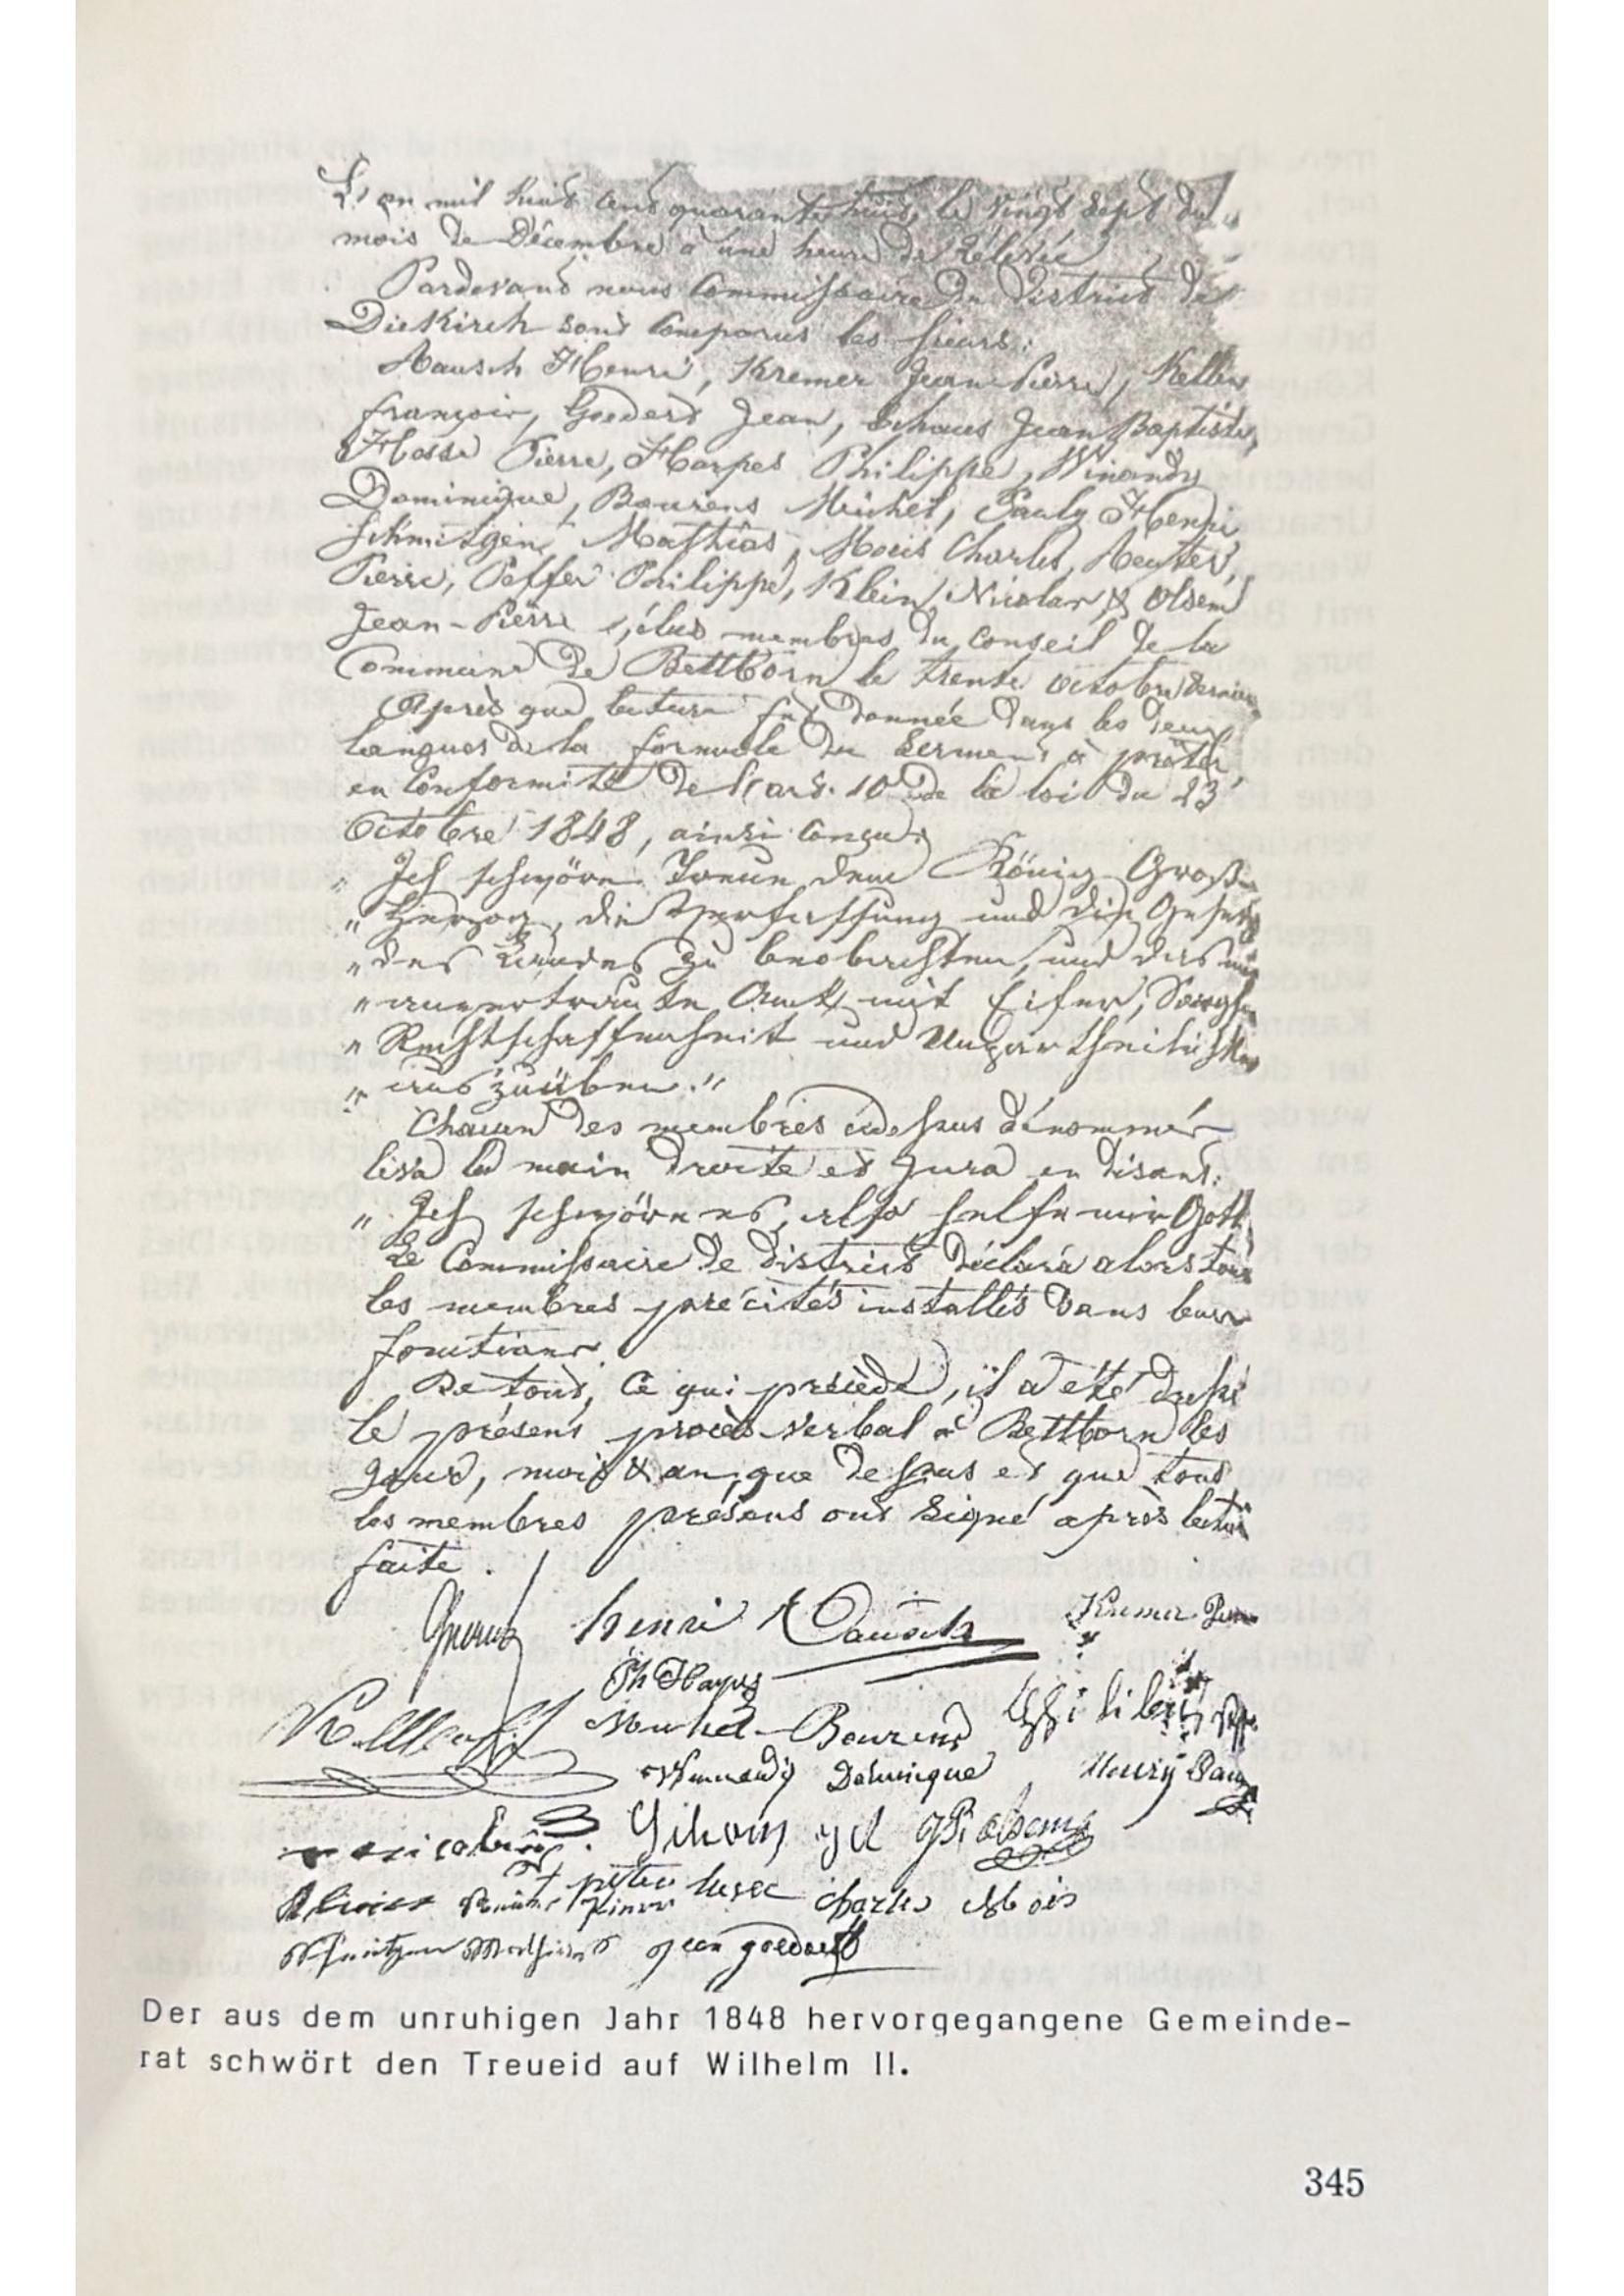 L'an mil huit cent quarante huit, le vingt sept du
mois de Décembre à une heure de rélevée
Pardevant nous Commissaire du District de
Diekirch sont Comparus les sieurs:
Rausch Henri, Kremer Jean-Pierre, Kellen
françois, Goedert Jean, Schaus Jean Baptiste,
Hosse Pierre, Harpes Philippe, Winandy
Dominique, Bourens Michel, Pauly Henri
Schmitgen Mathias, Mois Charles, Reuter,
Pierre, Peffer Philippe, Klein Nicolas, & Olsem
Jean-Pierre, élus membres du conseil de la
Commune de Bettborn le trente octobre dernier
Après que lecture fut donnée dans les deux
langues de la formule du serment à prêter
en Conformité de l'art. 10 de la loi du 23
Octobre 1848, ainsi conçu:
„ Ich schwöre Treue dem König Groß-
„ Herzog, die Verfassung und die Gesetze
„ des Landes zu beobachten, und das mir
„ anvertraute Amt mit Eifer,
„ Rechtschaffenheit und Unpartheilichkeit
„ auszuüben."
Chacun des membres cidessus dénommés
leva la main droite et jura en disant:
„ Ich schwöre es, also helfe mir Gott
Le Commissaire de district déclara alors tous
les membres précités installés dans leurs
fonctions
De tout ce qui précède, il a été dressé
le présent procès-verbal à Bettborn les
jour, mois & an, que dessus et que tous
les membres présens ont signé après lecture
faite.
henri Rausch Kremer
Ph Harpes
Michel Bourens
Winandy Dominique Henry Pauly
JP olsem
peter charles Mois
Jean goedert
Der aus dem unruhigen Jahr 1848 hervorgegangene Gemeinde-
rat schwört den Treueid auf Wilhelm II.
345